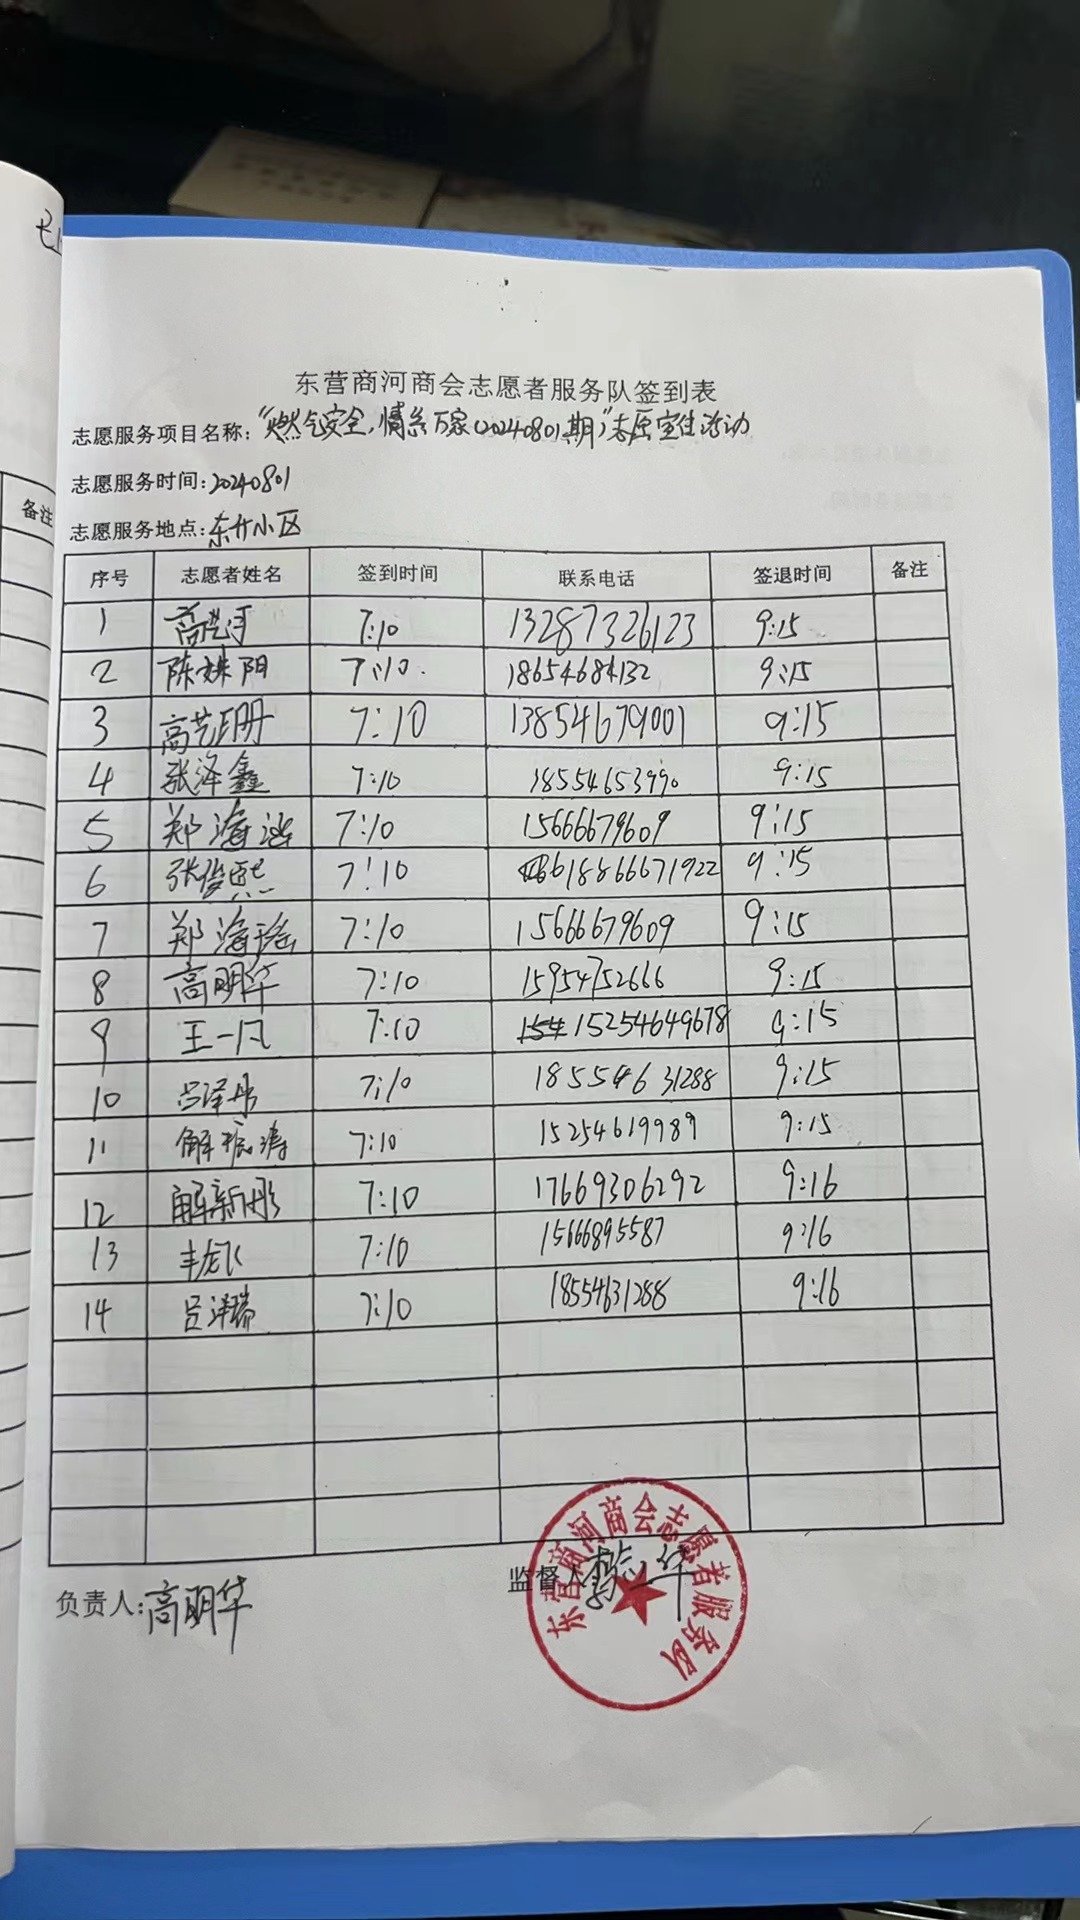 备注
东营商河商会志愿者服务队签到表
志愿服务项目名称:"燃气安全,情系万家(20240801期)"志愿宣传活动
志愿服务时间:20240801
志愿服务地点:东升小区
序号 志愿者姓名 签到时间 联系电话 签退时间 备注
1 高艺 7:10 13287326123 9:15
2 陈姝阳 7:10. 18654684132 9:15
3 高艺珊 7:10 13854679001 9:15
4 张泽鑫 7:10 18554653990 9:15
5 郑海涵 7:10 15666679609 9:15
6 张俊熙 7:10 18866671922 9:15
7 郑海瑶 7:10 15666679609 9:15
8 高明华 7:10 15954752666 9:15
9 王一凡 7:10 15254649678 9:15
10 吕泽彤 7:10 18554631288 9:15
11 解振涛 7:10 15254619989 9:15
12 解新彤 7:10 17669306292 9:16
13 丰龙飞 7:10 15666895587 9:16
14 吕泽瑞 7:10 18554631288 9:16
负责人:高明华
监督人 华
东营商河商会志愿者服务队